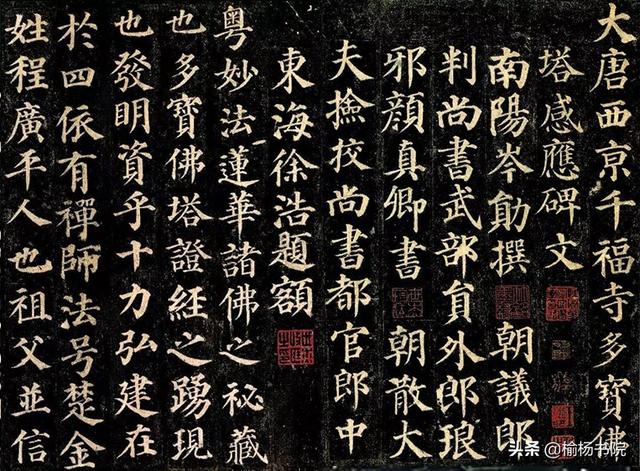 大唐西京千福寺多寶佛
塔感應碑文
南陽岑勛撰 朝議郎
判尚書武部貟外郎琅
邪顏真卿書 朝散大
夫撿挍尚書都官郎中
東海徐浩題額
粵妙法蓮華諸佛之祕藏
也多寶佛塔證經之踴現
也發明資乎十力弘建在
於四依有禪師法号楚金
姓程廣平人也祖父並信
头条 @榆杨书院